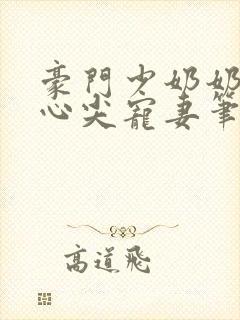 豪門少奶奶
心尖寵妻筆
高道飛